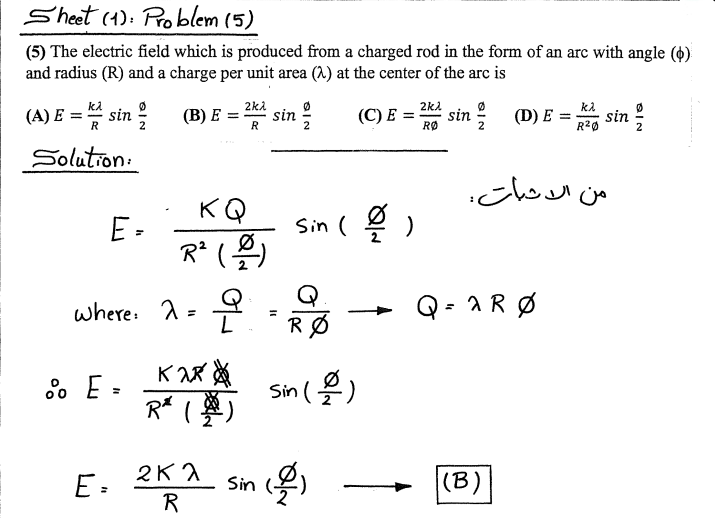 Sheet (1): Problem (5)
(5) The electric field which is produced from a charged rod in the form of an arc with angle (ϕ) and radius (R) and a charge per unit area (λ) at the center of the arc is
(A) E = kλ/R sin Ø/2 (B) E = 2kλ/R sin Ø/2 (C) E = 2kλ/RØ sin Ø/2 (D) E = kλ/R²Ø sin Ø/2
Solution:
من الاثبات:
E = KQ / R² (Ø/2) sin (Ø/2)
where: λ = Q/L = Q/RØ → Q = λ R Ø
∴ E = KλRØ / R² (Ø/2) sin (Ø/2)
E = 2Kλ/R sin (Ø/2) → (B)